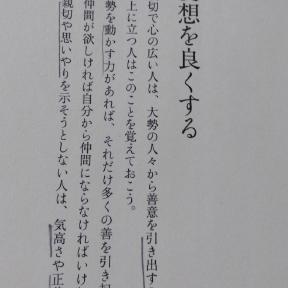 想を良くする
切で心の広い人は、大勢の人々から善意を引き出す
上に立つ人はこのことを覚えておこう。
勢を動かす力があれば、それだけ多くの善を引き起
仲間が欲しければ自分から仲間にならなければいけ
親切や思いやりを示そうとしない人は、気高さや正